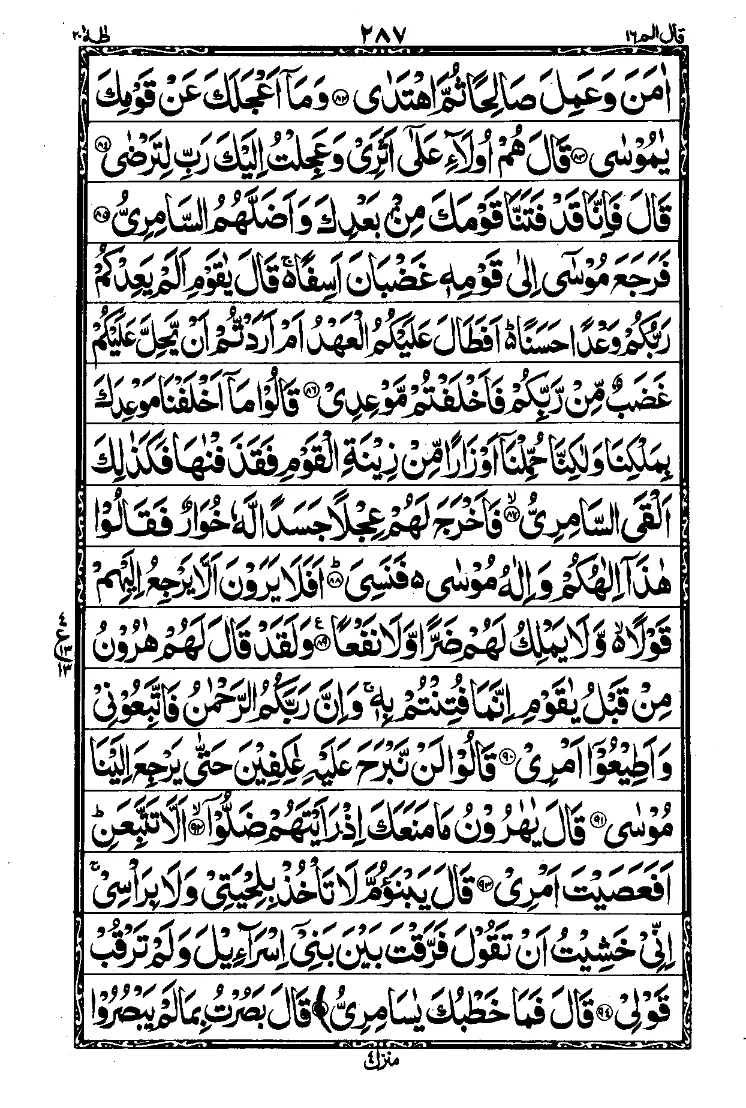 قال الم ١٦ ٢٨٧ طٰهٰ ٢٠
اٰمَنَ وَعَمِلَ صَالِحًا ثُمَّ اهْتَدٰى ۝٨٢ وَمَاۤ اَعْجَلَكَ عَنْ قَوْمِكَ
يٰمُوْسٰى ۝٨٣ قَالَ هُمْ اُولَآءِ عَلٰٓى اَثَرِىْ وَعَجِلْتُ اِلَيْكَ رَبِّ لِتَرْضٰى ۝٨٤
قَالَ فَاِنَّا قَدْ فَتَنَّا قَوْمَكَ مِنْۢ بَعْدِكَ وَاَضَلَّهُمُ السَّامِرِىُّ ۝٨٥
فَرَجَعَ مُوْسٰۤى اِلٰى قَوْمِهٖ غَضْبَانَ اَسِفًا ۚ قَالَ يٰقَوْمِ اَلَمْ يَعِدْكُمْ
رَبُّكُمْ وَعْدًا حَسَنًا ؕ اَفَطَالَ عَلَيْكُمُ الْعَهْدُ اَمْ اَرَدْتُّمْ اَنْ يَّحِلَّ عَلَيْكُمْ
غَضَبٌ مِّنْ رَّبِّكُمْ فَاَخْلَفْتُمْ مَّوْعِدِىْ ۝٨٦ قَالُوْا مَاۤ اَخْلَفْنَا مَوْعِدَكَ
بِمَلْكِنَا وَلٰكِنَّا حُمِّلْنَاۤ اَوْزَارًا مِّنْ زِيْنَةِ الْقَوْمِ فَقَذَفْنٰهَا فَكَذٰلِكَ
اَلْقَى السَّامِرِىُّ ۙ۝٨٧ فَاَخْرَجَ لَهُمْ عِجْلًا جَسَدًا لَّهٗ خُوَارٌ فَقَالُوْا
هٰذَاۤ اِلٰهُكُمْ وَاِلٰهُ مُوْسٰى ۥ فَنَسِىَ ؕ۝٨٨ اَفَلَا يَرَوْنَ اَلَّا يَرْجِعُ اِلَيْهِمْ
قَوْلًا ۙ وَّلَا يَمْلِكُ لَهُمْ ضَرًّا وَّلَا نَفْعًا ۝٨٩ وَلَقَدْ قَالَ لَهُمْ هٰرُوْنُ
مِنْ قَبْلُ يٰقَوْمِ اِنَّمَا فُتِنْتُمْ بِهٖ ۚ وَاِنَّ رَبَّكُمُ الرَّحْمٰنُ فَاتَّبِعُوْنِىْ
وَاَطِيْعُوْۤا اَمْرِىْ ۝٩٠ قَالُوْا لَنْ نَّبْرَحَ عَلَيْهِ عٰكِفِيْنَ حَتّٰى يَرْجِعَ اِلَيْنَا
مُوْسٰى ۝٩١ قَالَ يٰهٰرُوْنُ مَا مَنَعَكَ اِذْ رَاَيْتَهُمْ ضَلُّوْۤا ۙ۝٩٢ اَلَّا تَتَّبِعَنِ ؕ
اَفَعَصَيْتَ اَمْرِىْ ۝٩٣ قَالَ يَبْنَؤُمَّ لَا تَاْخُذْ بِلِحْيَتِىْ وَلَا بِرَاْسِىْ ۚ
اِنِّىْ خَشِيْتُ اَنْ تَقُوْلَ فَرَّقْتَ بَيْنَ بَنِىْۤ اِسْرَآءِيْلَ وَلَمْ تَرْقُبْ
قَوْلِىْ ۝٩٤ قَالَ فَمَا خَطْبُكَ يٰسَامِرِىُّ قَالَ بَصُرْتُ بِمَا لَمْ يَبْصُرُوْا
٤
ع
١٣
١٣
منزل ٤